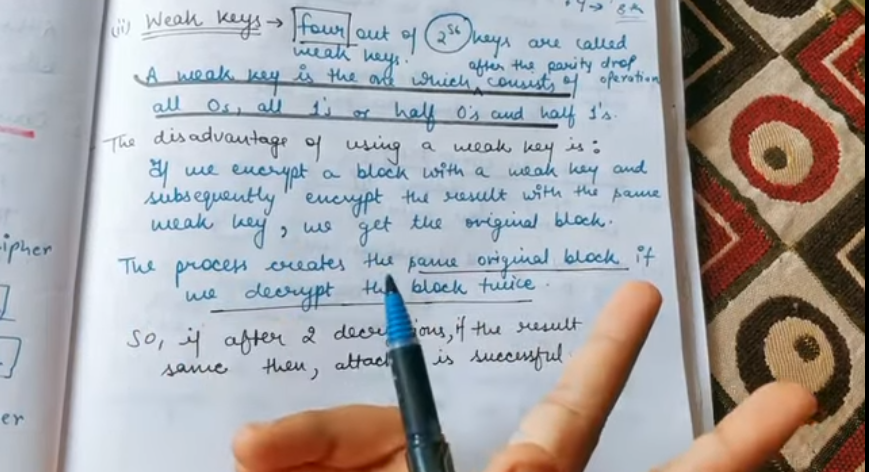 (ii) Weak Keys → four out of 2^56 keys are called
weak keys. after the parity drop operation
A weak key is the one which consists of
all 0s, all 1's or half 0's and half 1's.
The disadvantage of using a weak key is:
If we encrypt a block with a weak key and
subsequently encrypt the result with the same
weak key, we get the original block.
The process creates the same original block if
we decrypt the block twice.
So, if after 2 if the result
same then, is successful.
ipher
er